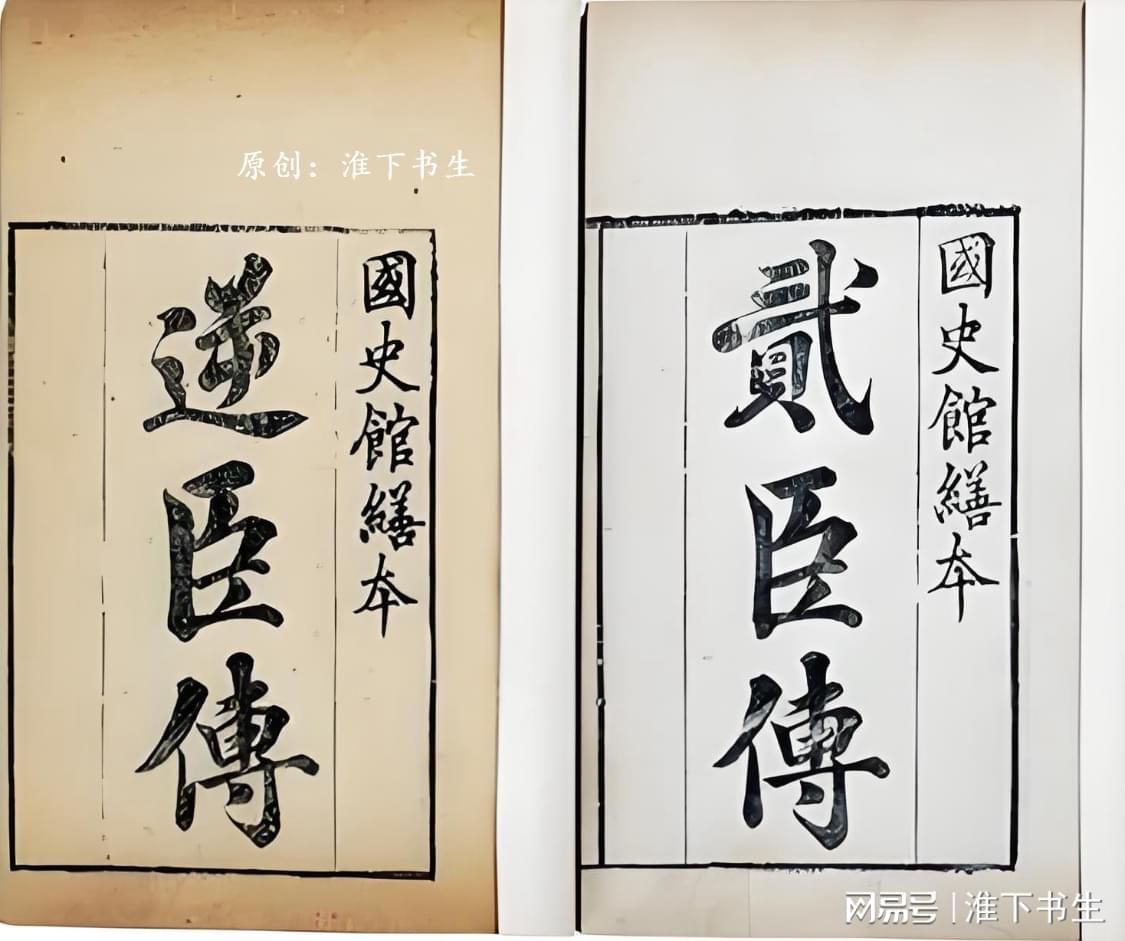 原创：淮下书生
國史館繕本
逆臣傳
國史館繕本
貳臣傳
网易号 | 淮下书生